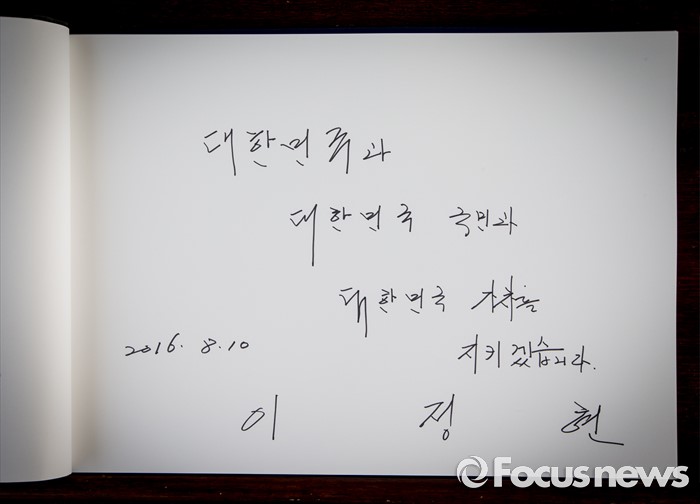 대한민국과
대한민국 국민과
대한민국 가치를
지키겠습니다.
2016. 8. 10
이 정 현
Focusnews